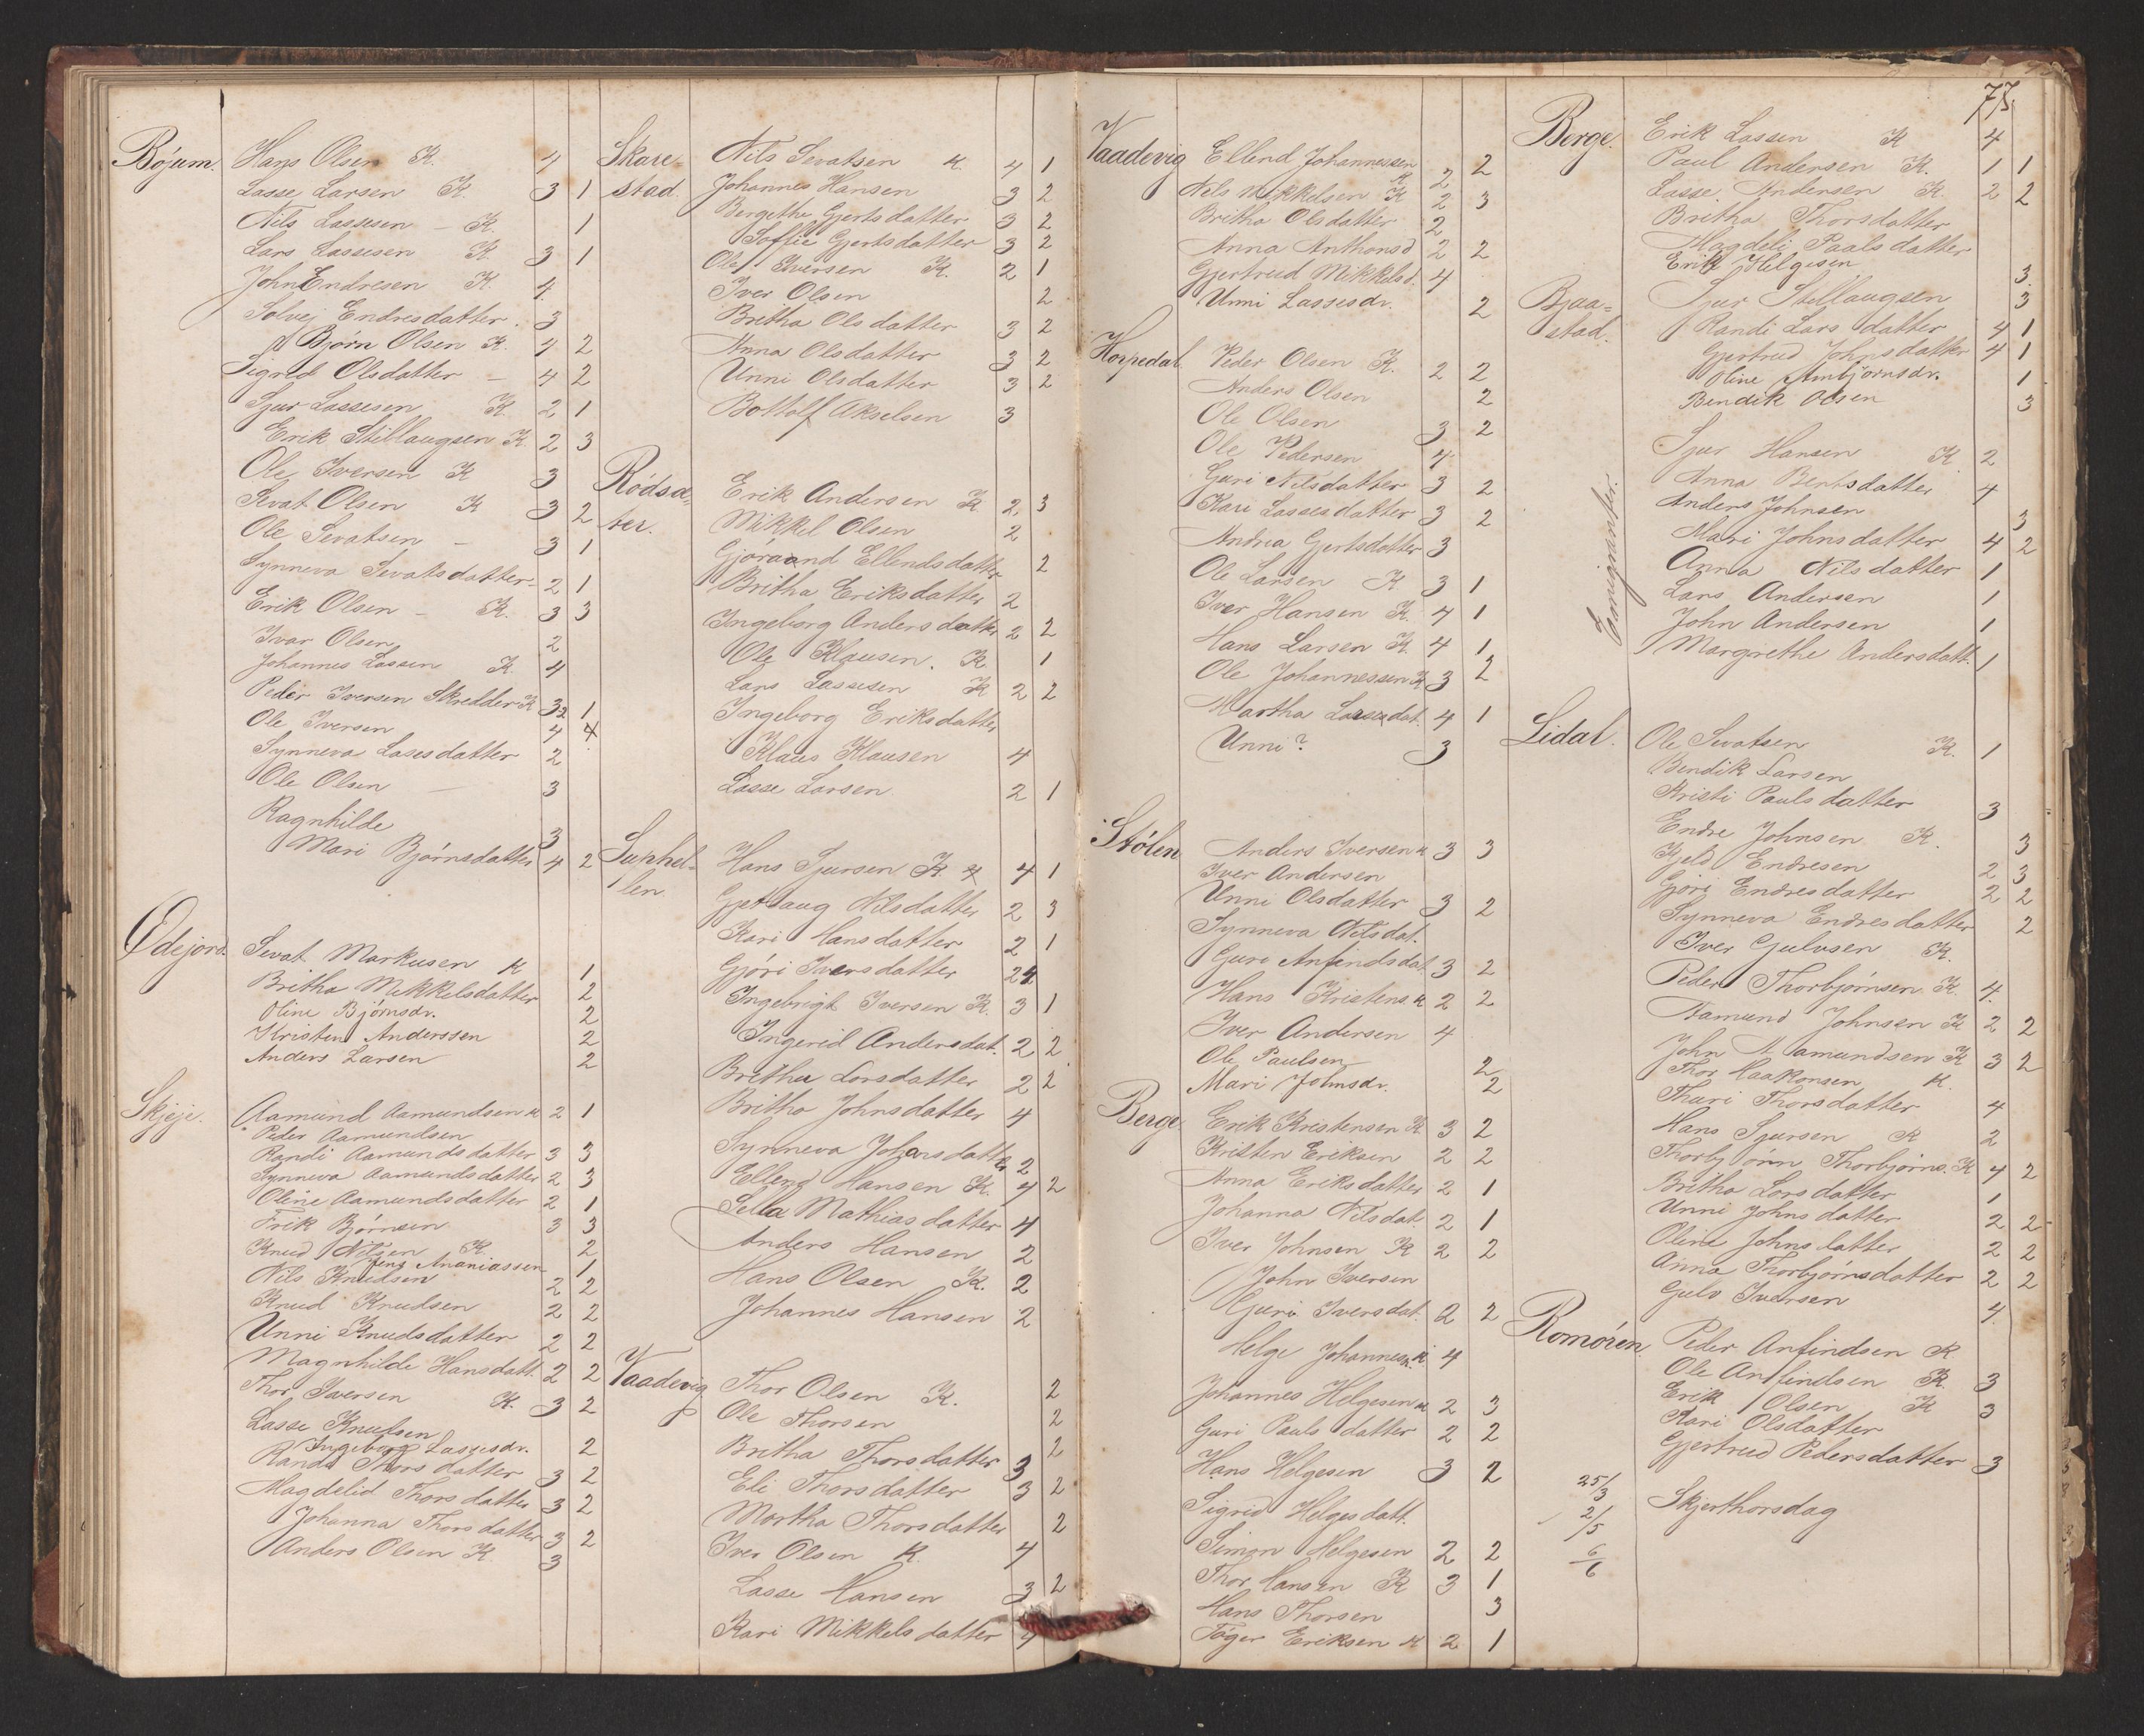 Bøjum. Hans Olsen K. 4
Lasse Larsen K. 3 1
Nils Lassesen - K. 1
Lars Lassesen K 3 1
John Endresen K. 4
Solvej Endresdatter. 3
Bjørn Olsen K. 4 2
Sigrid Olsdatter - 4 2
Sjur Lassesen K. 2 1
Erik Stillaugsen K. 2 3
Ole Iversen K 3
Sevat Olsen K 3 2
Ole Sevatsen - 3 1
Synneva Sevatsdatter- 2 1
Erik Olsen - K. 3 3
Ivar Olsen 2
Johannes Lassen K. 4
Peder Iversen Skredder K 1
Ole Iversen 4
Synneva Lasesdatter 2
Ole Olsen - 3
Ragnhilde 3
Mari Bjørnsdatter 4 2
Ødejord. Sevat Markusen K 1
Britha Mikkelsdatter 2
Oline Bjørnsdr. 2
Kristen Anderssen 2
Anders Larsen 2
Skjeje. Aamund Aamundsen K 2 1
Peder Aamundsen
Randi Aamundsdatter 3 3
Synneva Aamundsdatter 2 3
Oline Aamundsdatter 2 1
Erik Bjørnsen 3 3
Knud Nilsen K. 2
Jens Ananiassen 1
Nils Knudsen 2 2
Knud Knudsen 2 2
Unni Knudsdatter 2 2
Magnhilde Hansdatt. 2 2
Thor Iversen K. 3 2
Lasse Knutsen
Ingeborg Lassesdr. 2
Randi Thorsdatter 3 2
Magdelid Thorsdatter 3 2
Johanna Thorsdatter 3 2
Anders Olsen K 3
Skarestad. Nils Sevatsen K. 4 1
Johannes Hansen 3 2
Bergethe Gjertsdatter 3 2
Soffie Gjertsdatter 3 2
Ole Iversen K. 2 1
Iver Olsen 2
Britha Olsdatter 3 2
Anna Olsdatter 3 2
Unni Olsdatter 3 2
Bottolf Akselsen 3
Rødsæter. Erik Andersen K 2 3
Mikkel Olsen 2
Gjøraand Ellendsdatter 2
Britha Eriksdatter 2
Ingeborg Andersdatter 2 2
Ole Klausen. K 1
Lars Lassesen K 2 2
Ingeborg Eriksdatter
Klaus Klausen 4
Lasse Larsen 2 1
Suphellen. Hans Sjursen K. 4 1
Gjertaug Nilsdatter 2 3
Kari Hansdatter 2 1
Gjøri Iversdatter 2
Ingebrigt Iversen K. 3 1
Ingerid Andersdat. 2 2
Britha Larsdatter 2 2
Britha Johnsdatter 4
Synneva Johnsdatter 2
Ellend Hansen K. 4 2
Sella Mathiasdatter 4
Anders Hansen 2
Hans Olsen K. 2
Johannes Hansen 2
Vaadevig Thor Olsen K. 2
Ole Thorsen 2
Britha Thorsdatter 3 2
Eli Thorsdatter 3 2
Martha Thorsdatter 2
Iver Olsen K. 4
Lasse Hansen 3 2
Kari Mikkelsdatter 4
77.
Vaadevig Ellend Johannessen K 2 2
Nils Mikkelsen K 2 3
Britha Olsdatter 2
Anna Anthonsd 2 2
Gjertrud Mikkelsd. 4
Unni Lassesdr. 2
Horpedal Peder Olsen K. 2 2
Anders Olsen 2
Ole Olsen 3 2
Ole Pedersen 4
Guri Nilsdatter 3 2
Kari Lassesdatter 3 2
Andrea Gjertsdatter 3
Ole Larsen K 3 1
Iver Hansen K. 4 1
Hans Larsen K. 4 1
Ole Johannessen K 3 2
Martha Larsesdat. 4 1
Unni? 3
Stølen Anders Iversen K 3 3
Iver Andersen
Unni Olsdatter 3 2
Synneva Nilsdat.
Guri Anfindsdat. 3 2
Hans Kristens. K 2 2
Iver Andersen 4
Ole Paulsen 2
Mari Johnsdr. 2
Berge Erik Kristensen K 3 2
Kristen Eriksen 2 2
Anna Eriksdatter 2 1
Johanna Nilsdat. 2 1
Iver Johnsen K 2 2
John Iversen
Guri Iversdat. 2 2
Helge Johannes. K 4
Johannes Helgesen K 2 3
Guri Paulsdatter 2 2
Hans Helgesen 3 2
Sigrid Helgesdatt.
Simon Helgesen 2 2
Thor Hansen K 3 1
Hans Thorsen 3
Tøger Eriksen K 2 1
Berge. Erik Lassen K 4
Paul Andersen K. 1 1
Lasse Andersen K. 2 2
Britha Thorsdatter
Magdeli Paalsdatter
Erik Helgesen 3.
Bjaastad. Sjur Stillaugsen 3
Randi Larsdatter 4 1
Gjertrud Johnsdatter 4 1
Oline Ambjørnsdr. 1
Bendik Olsen 3
Emigranter.
Sjur Hansen K 2
Anna Bentsdatter 4
Anders Johnsen 3
Mari Johnsdatter 4 2
Anna Nilsdatter 1
Lars Andersen 1
John Andersen 1
Margrethe Andersdatt. 1
Lidal. Ole Sevatsen K. 1
Bendik Larsen
Kristi Paulsdatter 3
Endre Johnsen K. 3
Kjeld Endresen 2 3
Gjøri Endresdatter 2 2
Synneva Endresdatter 2
Iver Gulvsen K.
Peder Thorbjørnsen K. 4.
Aamund Johnsen K 2 2
John Aamundsen K 3 2
Thor Haakonsen K.
Thuri Thorsdatter 4
Hans Sjursen K 2
Thorbjørn Thorbjørns. K 4 2
Britha Larsdatter 1
Unni Johnsdatter 2 2
Oline Johnsdatter 2 2
Anna Thorbjørnsdatter 2 2
Gulv Iversen 4.
Romøren. Peder Anfindsen K
Ole Anfindsen K. 3
Erik Olsen K 3
Kari Olsdatter
Gjertrud Pedersdatter 3
25/3 Skjerthorsdag
2/5
6/6